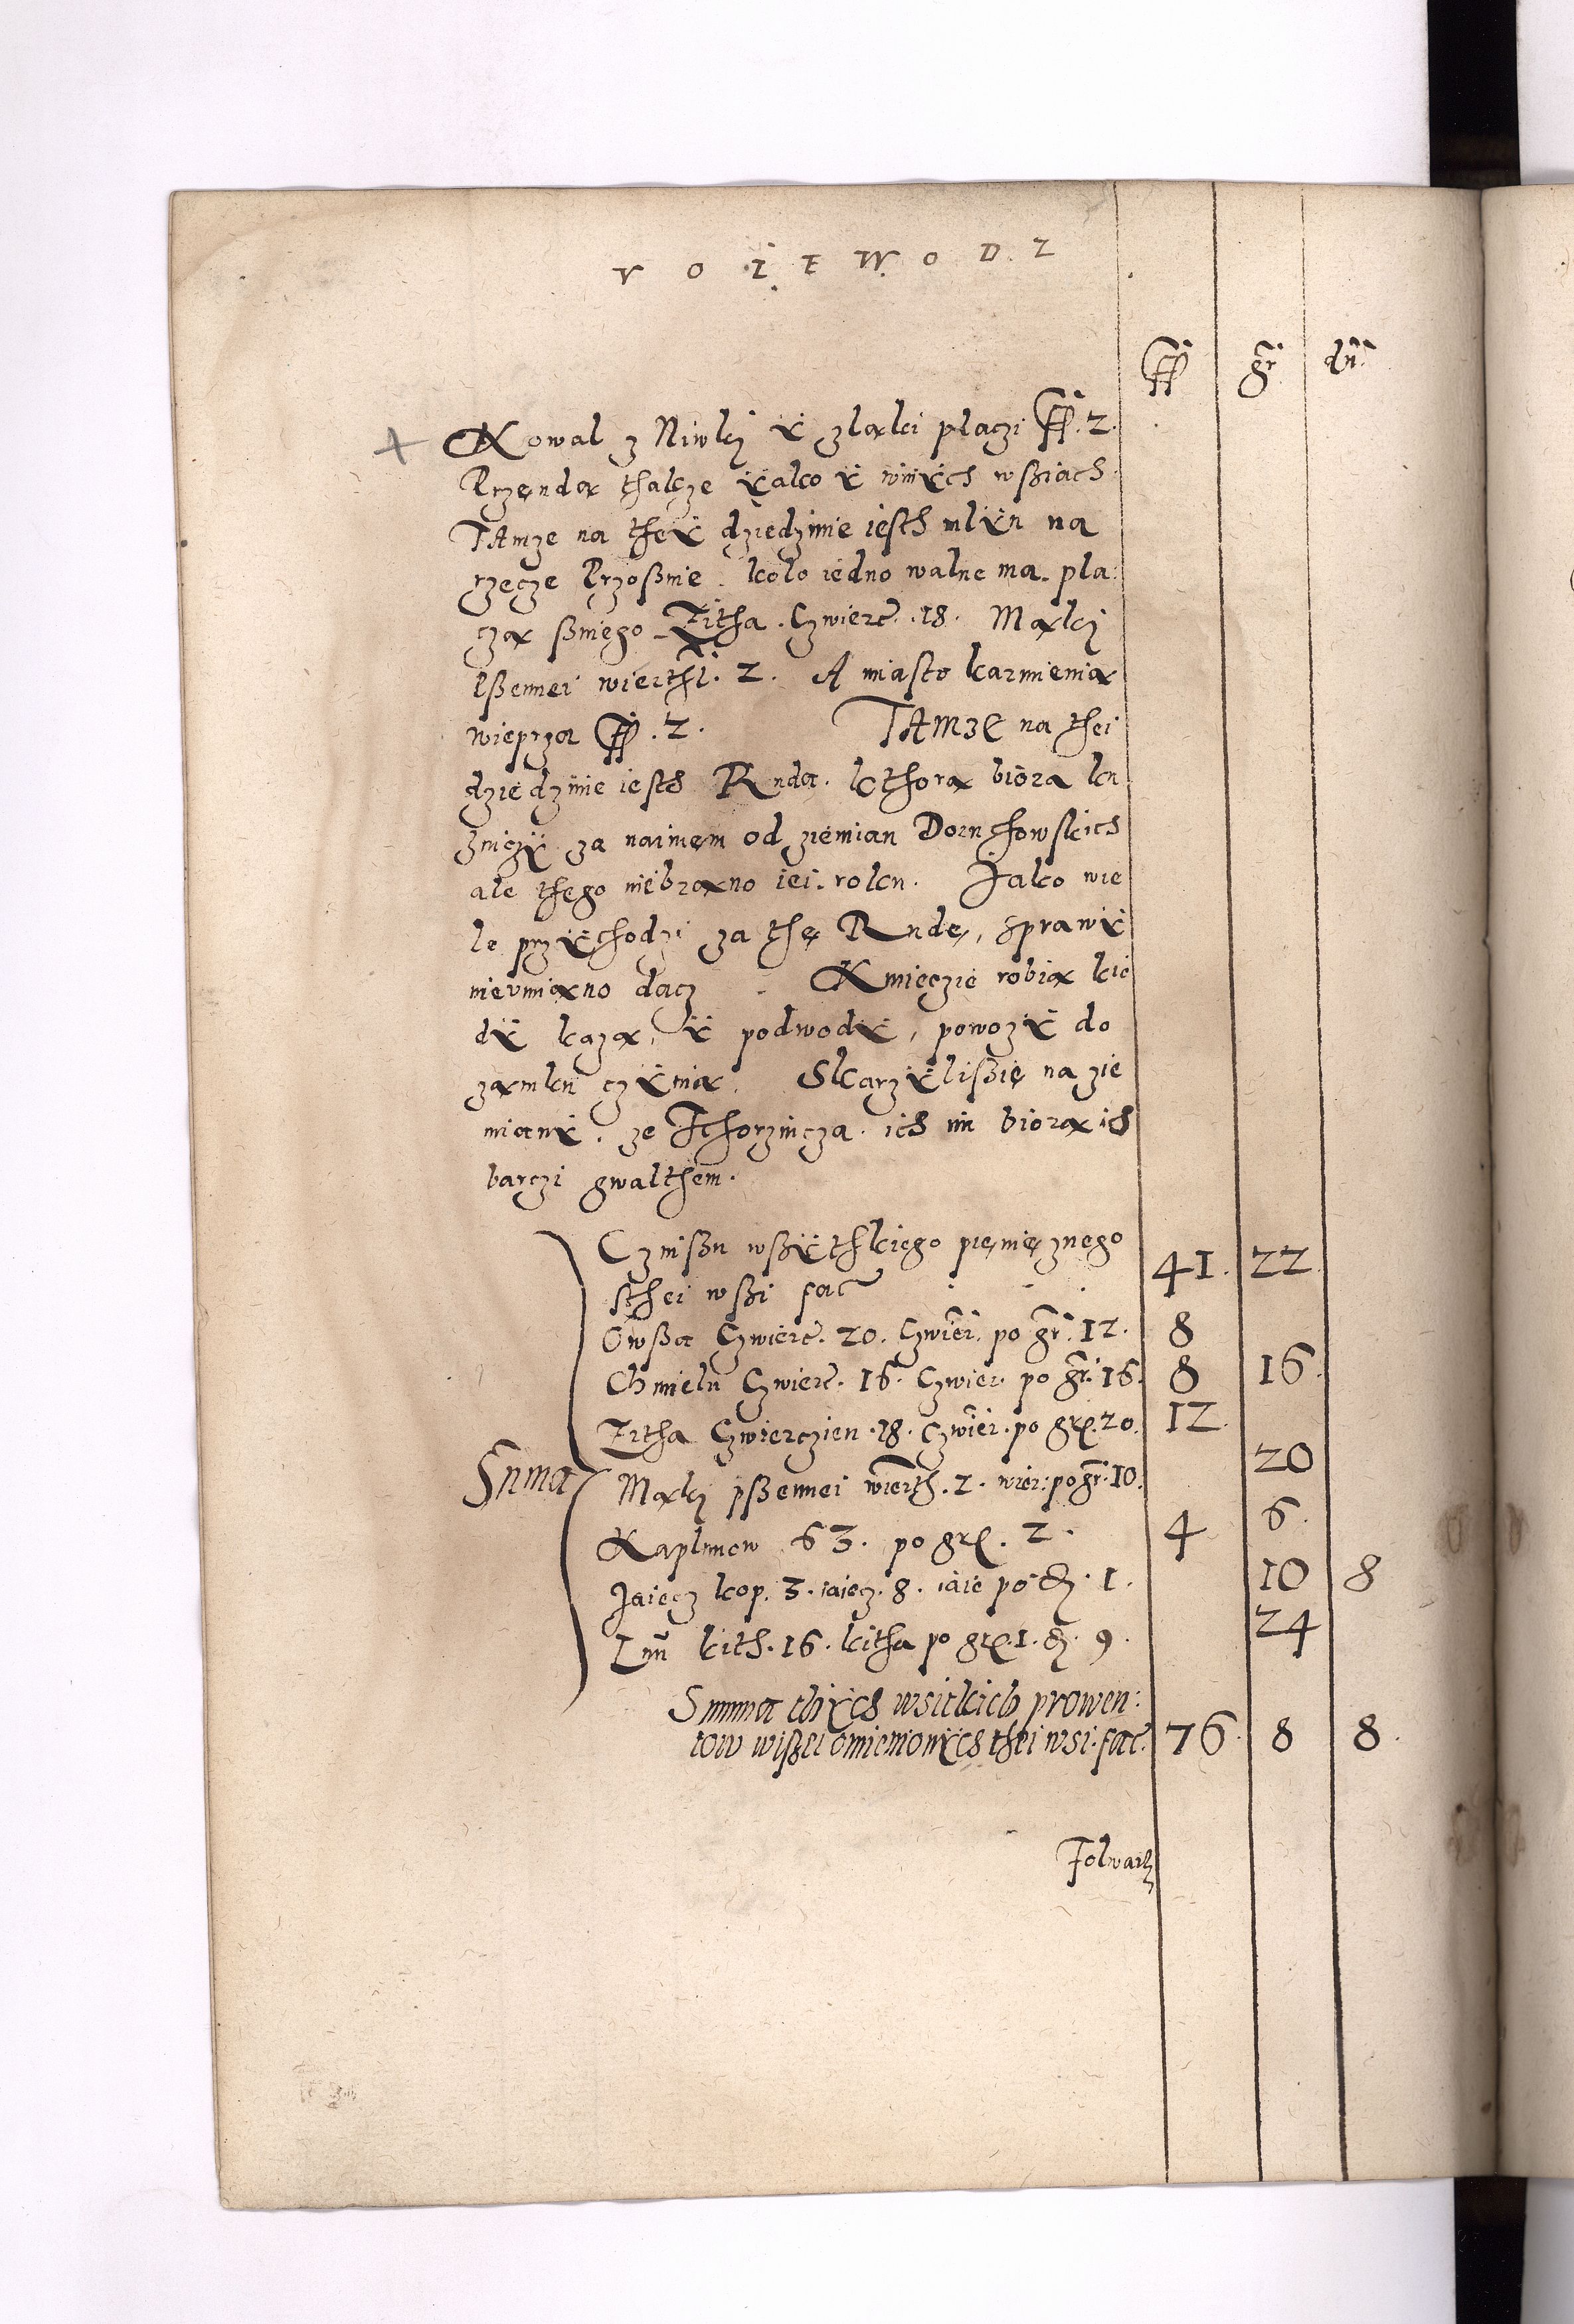 V O I E W O D Z
ff gr dn
Kowal z Niwky ÿ zlaki placzi ff. 2.
Przenda thakze ÿako ÿ winÿch wßiach
TAmze na theÿ dziedzinie iesth mlÿn na
rzecze Przoßnie. kolo iedno walne ma. pla:
cza ßniego Zitha. Czwierc. 18. Maky
Pßennei wierthl. 2. A miasto karmienia
wieprza ff. 2. TAMZE na thei
dziedzinie iesth Ruda. kthora biora ku
zniczÿ za naimem od ziemian Doruchowskich
ale thego niebrano iei. roku. Jako wie
le przÿchodzi za the Rude, sprawÿ
nieumiano dacz. Kmieczie robia kie
dÿ kaza, ÿ podwodÿ, powozÿ do
zamku czÿnia. Skarzÿlißie na zie
mianÿ. ze Tchorznicza. ich im biora ich
barczi gwalthem.
Czinßu wßÿthkiego pienieznego
sthei wßi fac 41. 22.
Owßa Czwierc. 20. Czwier. po gr. 12. 8
Chmielu Czwierc. 16. Czwier. po gr. 16. 8 16.
Zitha Czwierczien. 18. czwier. po gr. 20. 12
Suma Maky pßennei wierth. 2. wier: po gr. 10. 20
Kaplunow 63. po gr. 2. 4 6.
Jaiecz kop. 3. iaiecz. 8. iaie po d. 1. 10 8
Lnu kith. 16. kitha po gr. 1. d. 9. 24
Summa thÿch wsitkich prowen:
tow wißei omienionÿch thei wsi. fac. 76. 8 8.
Folwark